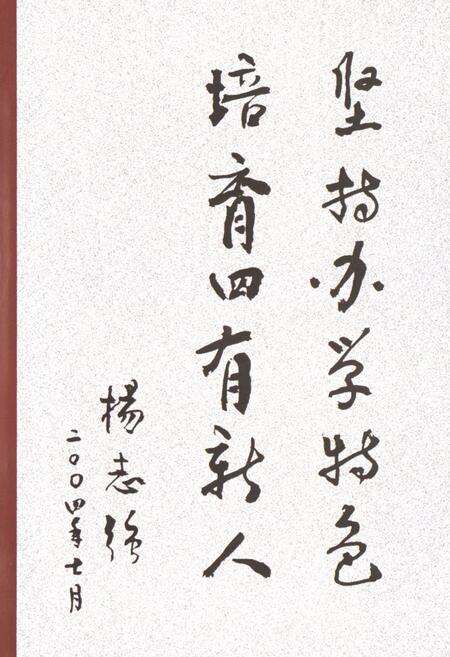 坚持办学特色
培育四有新人
楊志强
二〇〇四年七月